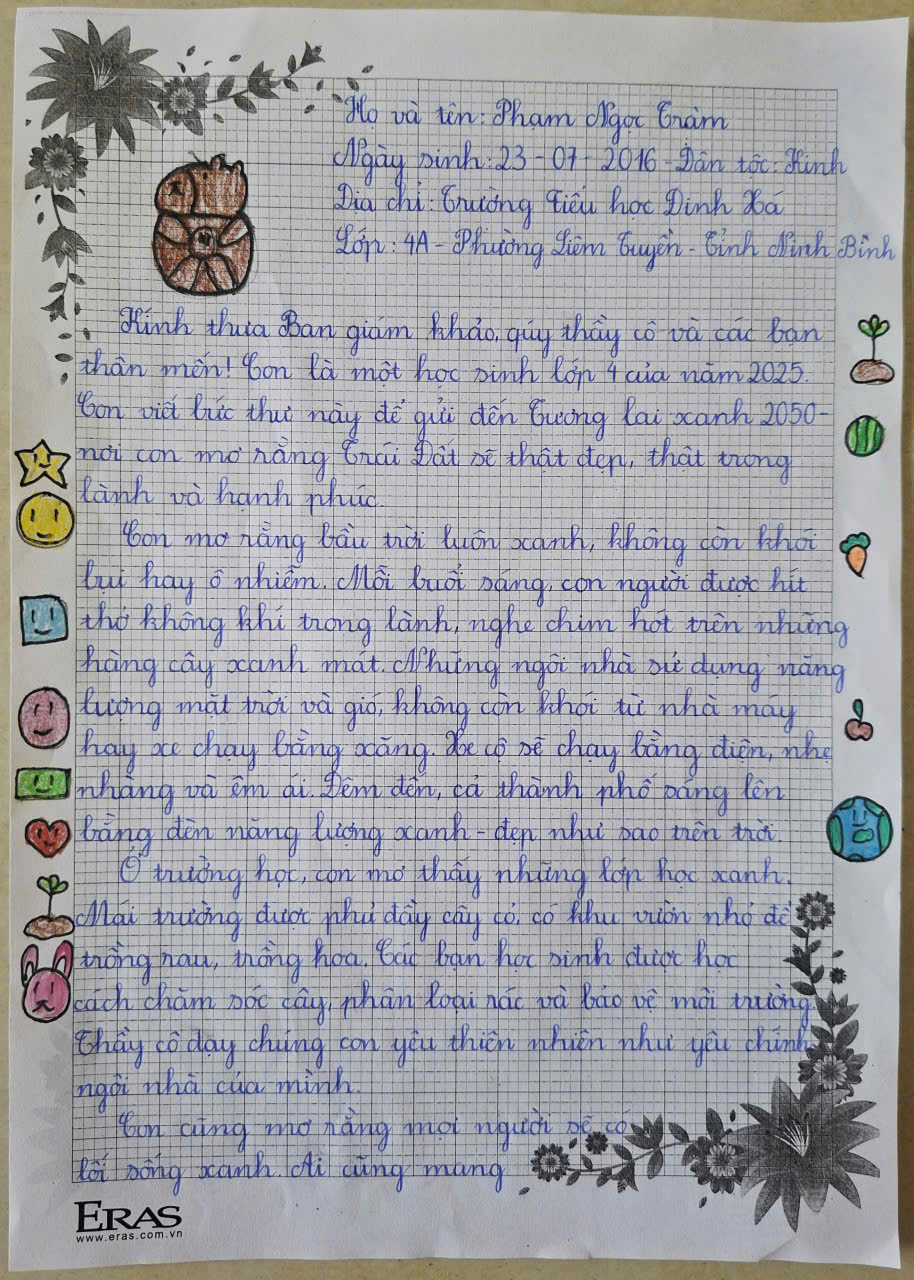 Họ và tên: Phạm Ngọc Trâm
Ngày sinh: 23-07-2016-Dân tộc: Kinh
Địa chỉ: Trường Tiểu học Đinh Xá
Lớp: 4A - Phường Liêm Tuyền - Tỉnh Ninh Bình
Kính thưa Ban giám khảo, qúy thầy cô và các bạn
thân mến! Con là một học sinh lớp 4 của năm 2025.
Con viết bức thư này để gửi đến Tương lai xanh 2050-
nơi con mơ rằng Trái Đất sẽ thật đẹp, thật trong
lành và hạnh phúc.
Con mơ rằng bầu trời luôn xanh, không còn khói
bụi hay ô nhiễm. Mỗi buổi sáng, con người được hít
thở không khí trong lành, nghe chim hót trên những
hàng cây xanh mát. Những ngôi nhà sử dụng năng
lượng mặt trời và gió, không còn khói từ nhà máy
hay xe chạy bằng xăng. Xe cộ sẽ chạy bằng điện, nhẹ
nhàng và êm ái. Đêm đến, cả thành phố sáng lên
bằng đèn năng lượng xanh - đẹp như sao trên trời.
Ở trường học, con mơ thấy những lớp học xanh.
Mái trường được phủ đầy cây cỏ, có khu vườn nhỏ để
trồng rau, trồng hoa. Các bạn học sinh được học
cách chăm sóc cây, phân loại rác và bảo vệ môi trường.
Thầy cô dạy chúng con yêu thiên nhiên như yêu chính
ngôi nhà của mình.
Con cũng mơ rằng mọi người sẽ có
lối sống xanh. Ai cũng mang
ERAS
www.eras.com.vn